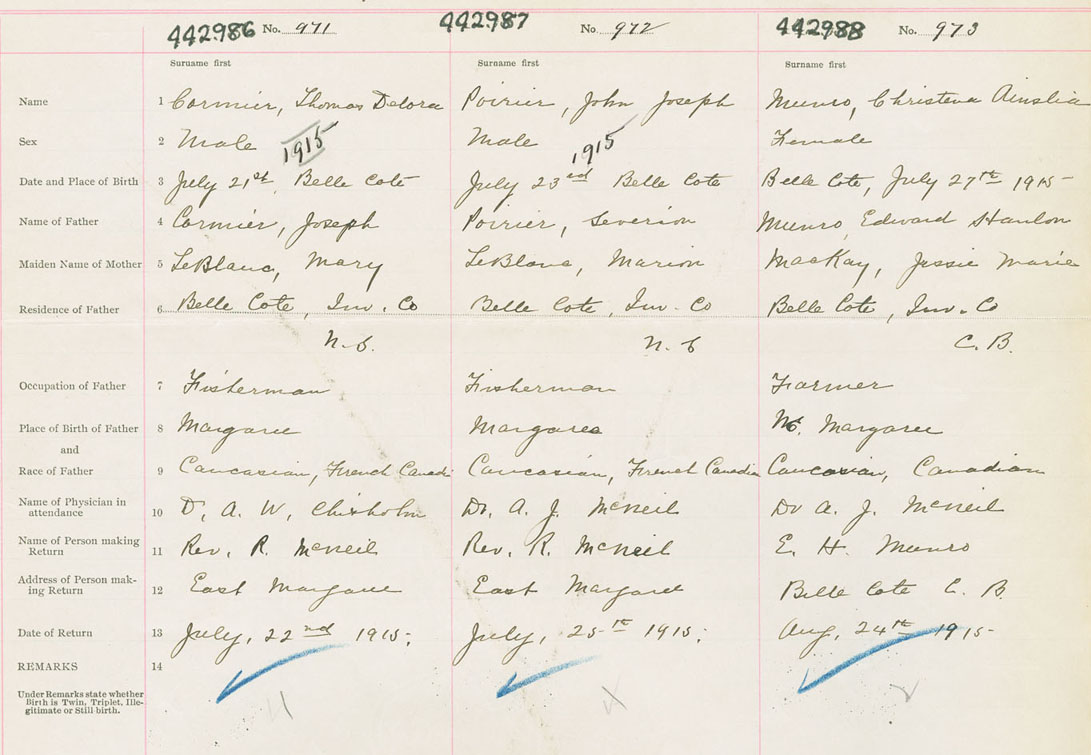 442986 No. 971 442987 No 972 442988 No. 973
Surname first Surname first Surname first
Name 1 Cormier, Thomas Delora Poirier, John Joseph Munro, Christena Ainslia
Sex 2 Male Male Female
1915 1915
Date and Place of Birth 3 July 21st, Belle Cote July 23rd Belle Cote Belle Cote, July 27th 1915
Name of Father 4 Cormier, Joseph Poirier, Severion Munro, Edward Hanlon
Maiden Name of Mother 5 LeBlanc, Mary LeBlanc, Marion MacKay, Jessie Marie
Residence of Father 6 Belle Cote, Inv. Co Belle Cote, Inv. Co Belle Cote, Inv. Co
N.S. N.S C.B.
Occupation of Father 7 Fisherman Fisherman Farmer
Place of Birth of Father 8 Margaree Margaree Margaree
and
Race of Father 9 Caucasian, French Canadi Caucasian, French Canadian Caucasian, Canadian
Name of Physician in
attendance 10 D. A. W. Chisholm Dr. A. J. McNeil Dr A. J. McNeil
Name of Person making
Return 11 Rev. R. McNeil Rev. R. McNeil E. H. Munro
Address of Person mak-
ing Return 12 East Margaree East Margaree Belle Cote C. B.
Date of Return 13 July, 22nd 1915; July, 25th 1915; Aug, 24th 1915
REMARKS 14
Under Remarks state whether
Birth is Twin, Triplet, Ille-
gitimate or Still birth.